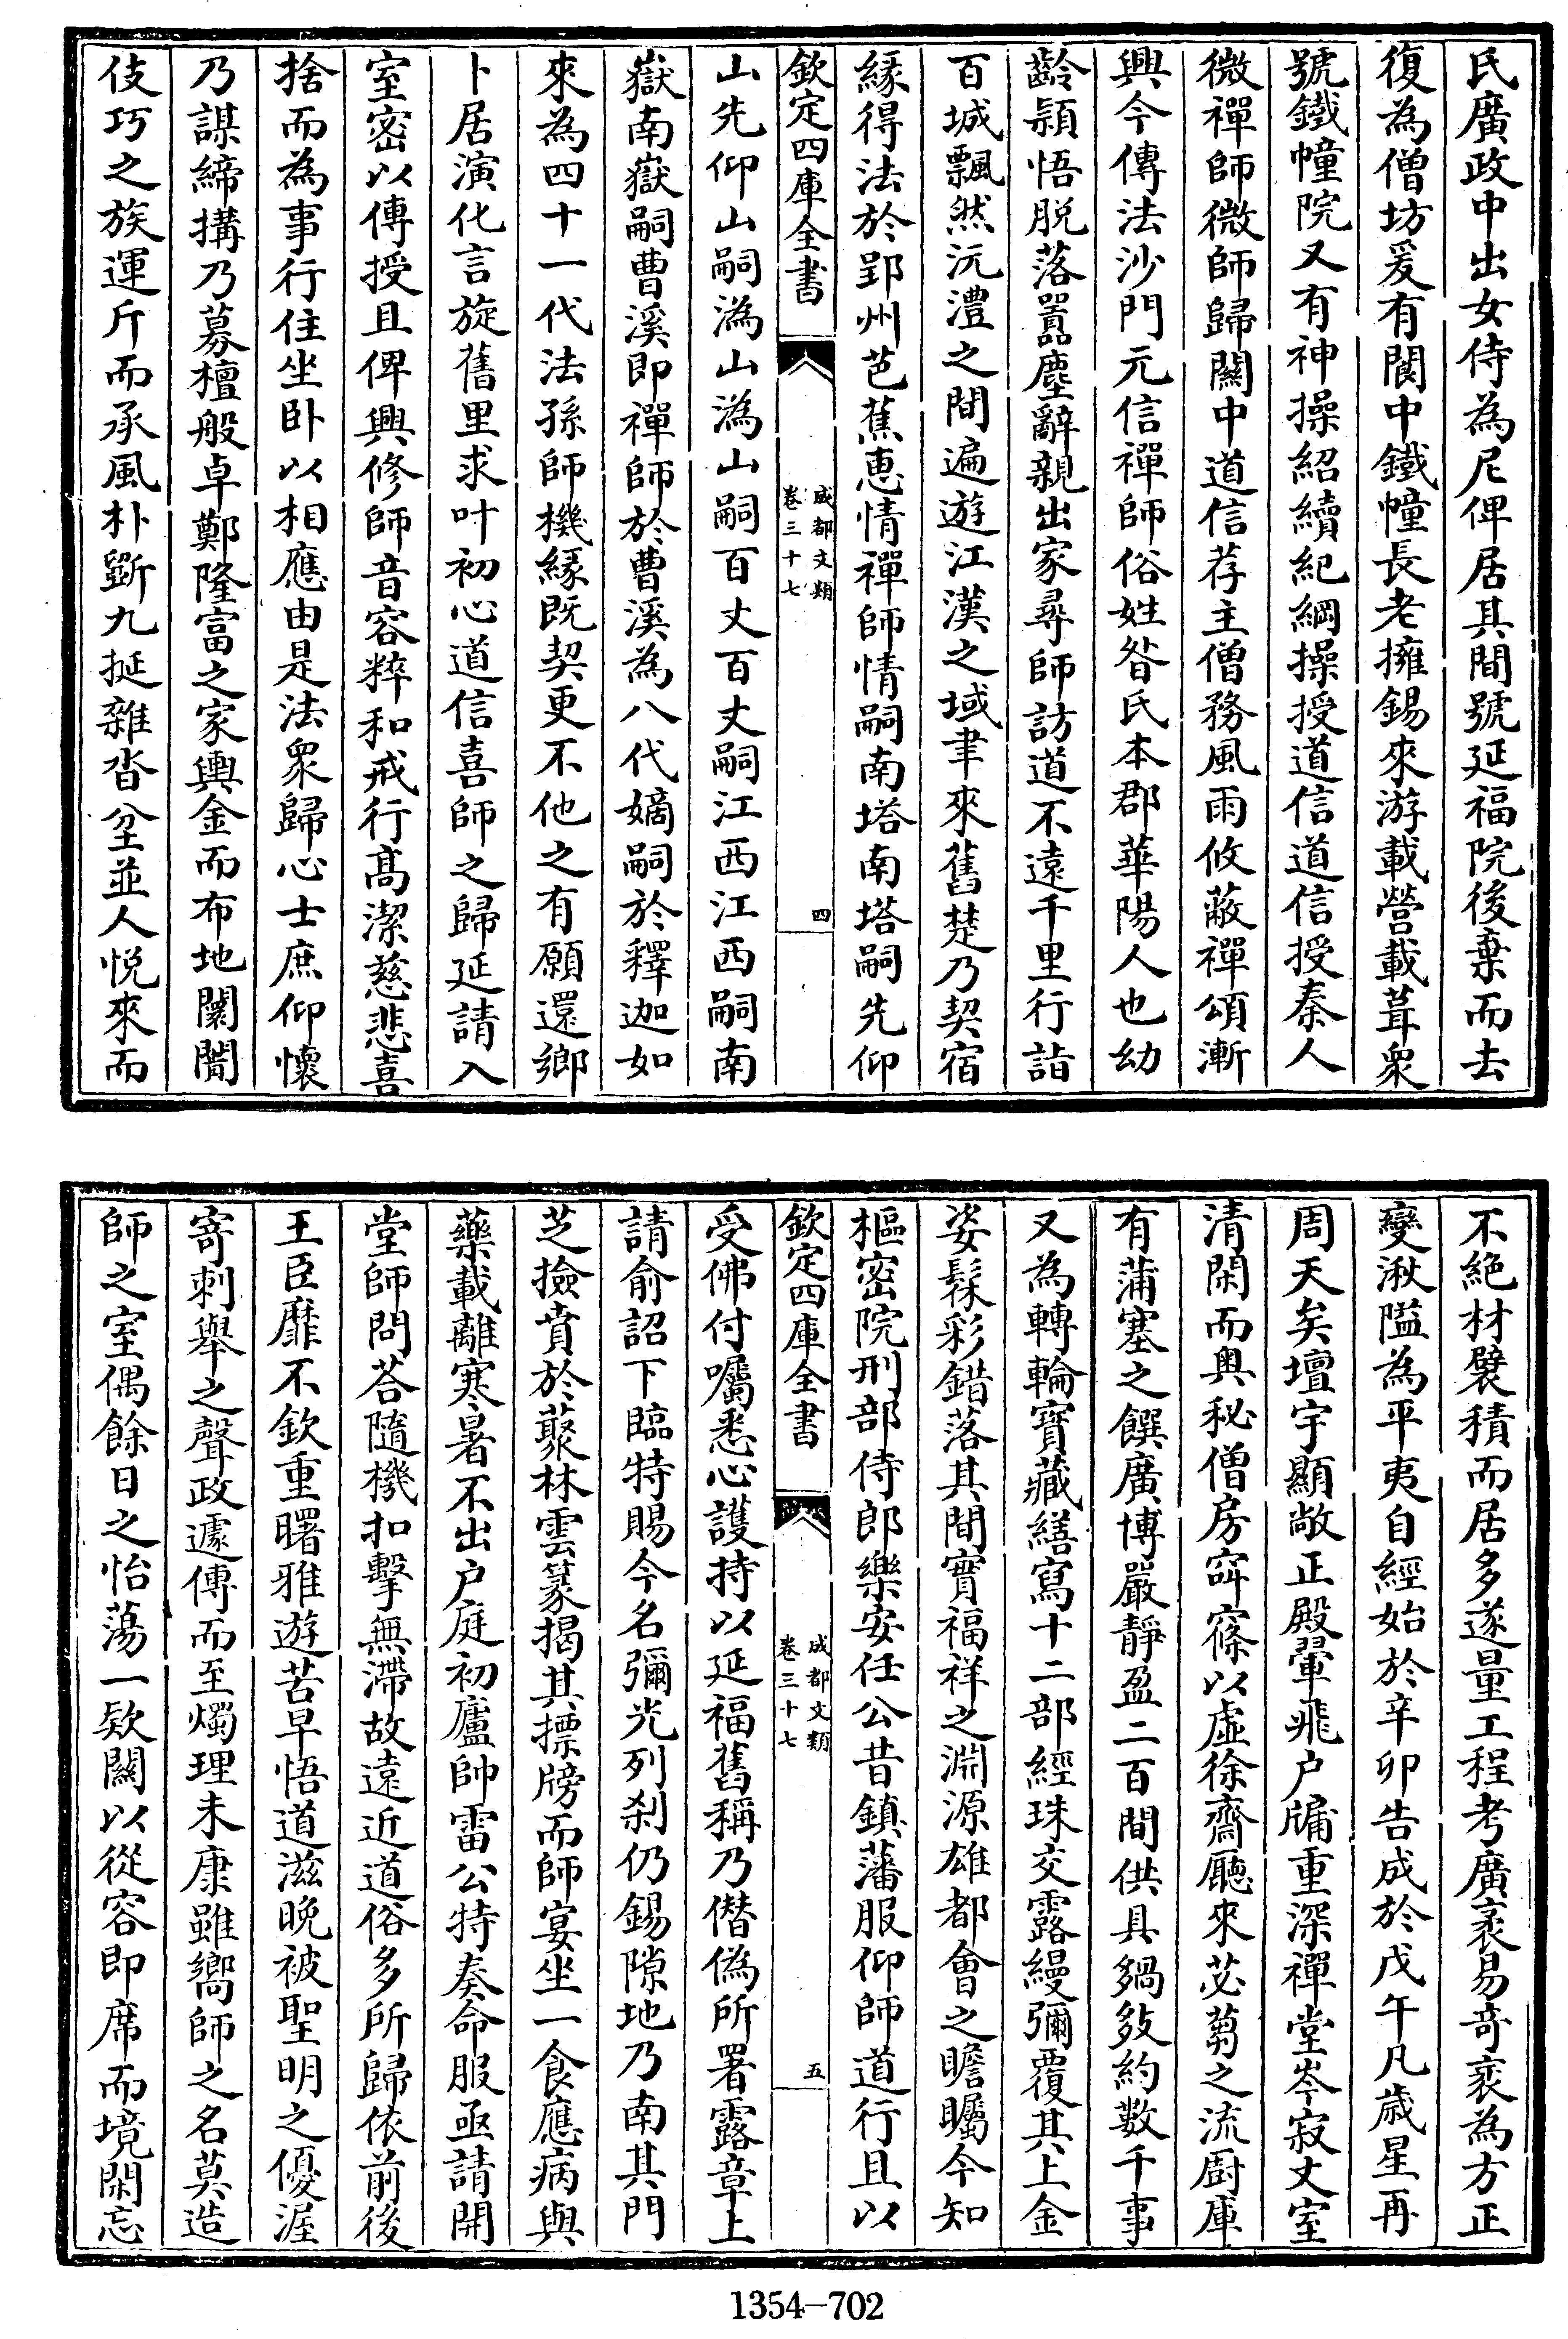 氏廣政中出女侍為尼俾居其間號延福院後棄而去
復為僧坊爰有閬中鐵幢長老擁錫來游載營載葺衆
號鐵幢院又有神操紹續紀綱操授道信道信授秦人
微禪師微師歸闗中道信荐主僧務風雨攸蔽禪頌漸
興今傳法沙門元信禪師俗姓昝氏本郡華陽人也幼
齡頴悟脱落嚚塵辭親出家尋師訪道不遠千里行詣
百城飄然沅澧之間遍遊江漢之域聿來舊楚乃契宿
緣得法於郢州芭蕉恵情禪師情嗣南塔南塔嗣先仰
欽定四庫全書
成都文類
卷三十七
四
山先仰山嗣溈山溈山嗣百丈百丈嗣江西江西嗣南
嶽南嶽嗣曹溪即禪師於曹溪為八代嫡嗣於釋迦如
來為四十一代法孫師機緣既契更不他之有願還鄉
卜居演化言旋舊里求叶初心道信喜師之歸延請入
室密以傳授且俾興修師音容粹和戒行髙潔慈悲喜
捨而為事行住坐卧以相應由是法衆歸心士庶仰懷
乃謀締搆乃募檀般卓鄭隆富之家輿金而布地闤闠
伎巧之族運斤而承風朴斵九挻雜沓坌並人悦來而
不絶材襞積而居多遂量工程考廣袤易奇衺為方正
變湫隘為平夷自經始於辛卯告成於戊午凡歲星再
周天矣壇宇顯敞正殿翬飛户牖重深禪堂岑寂丈室
清閑而奥秘僧房窣窱以虚徐齋廳來苾蒭之流廚庫
有蒲塞之饌廣博嚴靜盈二百間供具鍋敥約數千事
又為轉輪寳藏繕寫十二部經珠交露縵彌覆其上金
姿髹彩錯落其間實福祥之淵源雄都會之瞻矚今知
樞密院刑部侍郎樂安任公昔鎮藩服仰師道行且以
欽定四庫全書
成都文類
卷三十七
五
受佛付囑悉心護持以延福舊稱乃僭偽所署露章上
請俞詔下臨特賜今名彌光列刹仍錫隙地乃南其門
芝撿賁於藂林雲篆揭其摽牓而師宴坐一食應病與
藥載離寒暑不出户庭初廬帥雷公特奏命服亟請開
堂師問荅隨機扣擊無滯故遠近道俗多所歸依前後
王臣靡不欽重曙雅遊苦早悟道滋晚被聖明之優渥
寄刺舉之聲政遽傳而至燭理未康雖嚮師之名莫造
師之室偶餘日之怡蕩一欵闗以從容即席而境閑忘
1354—702